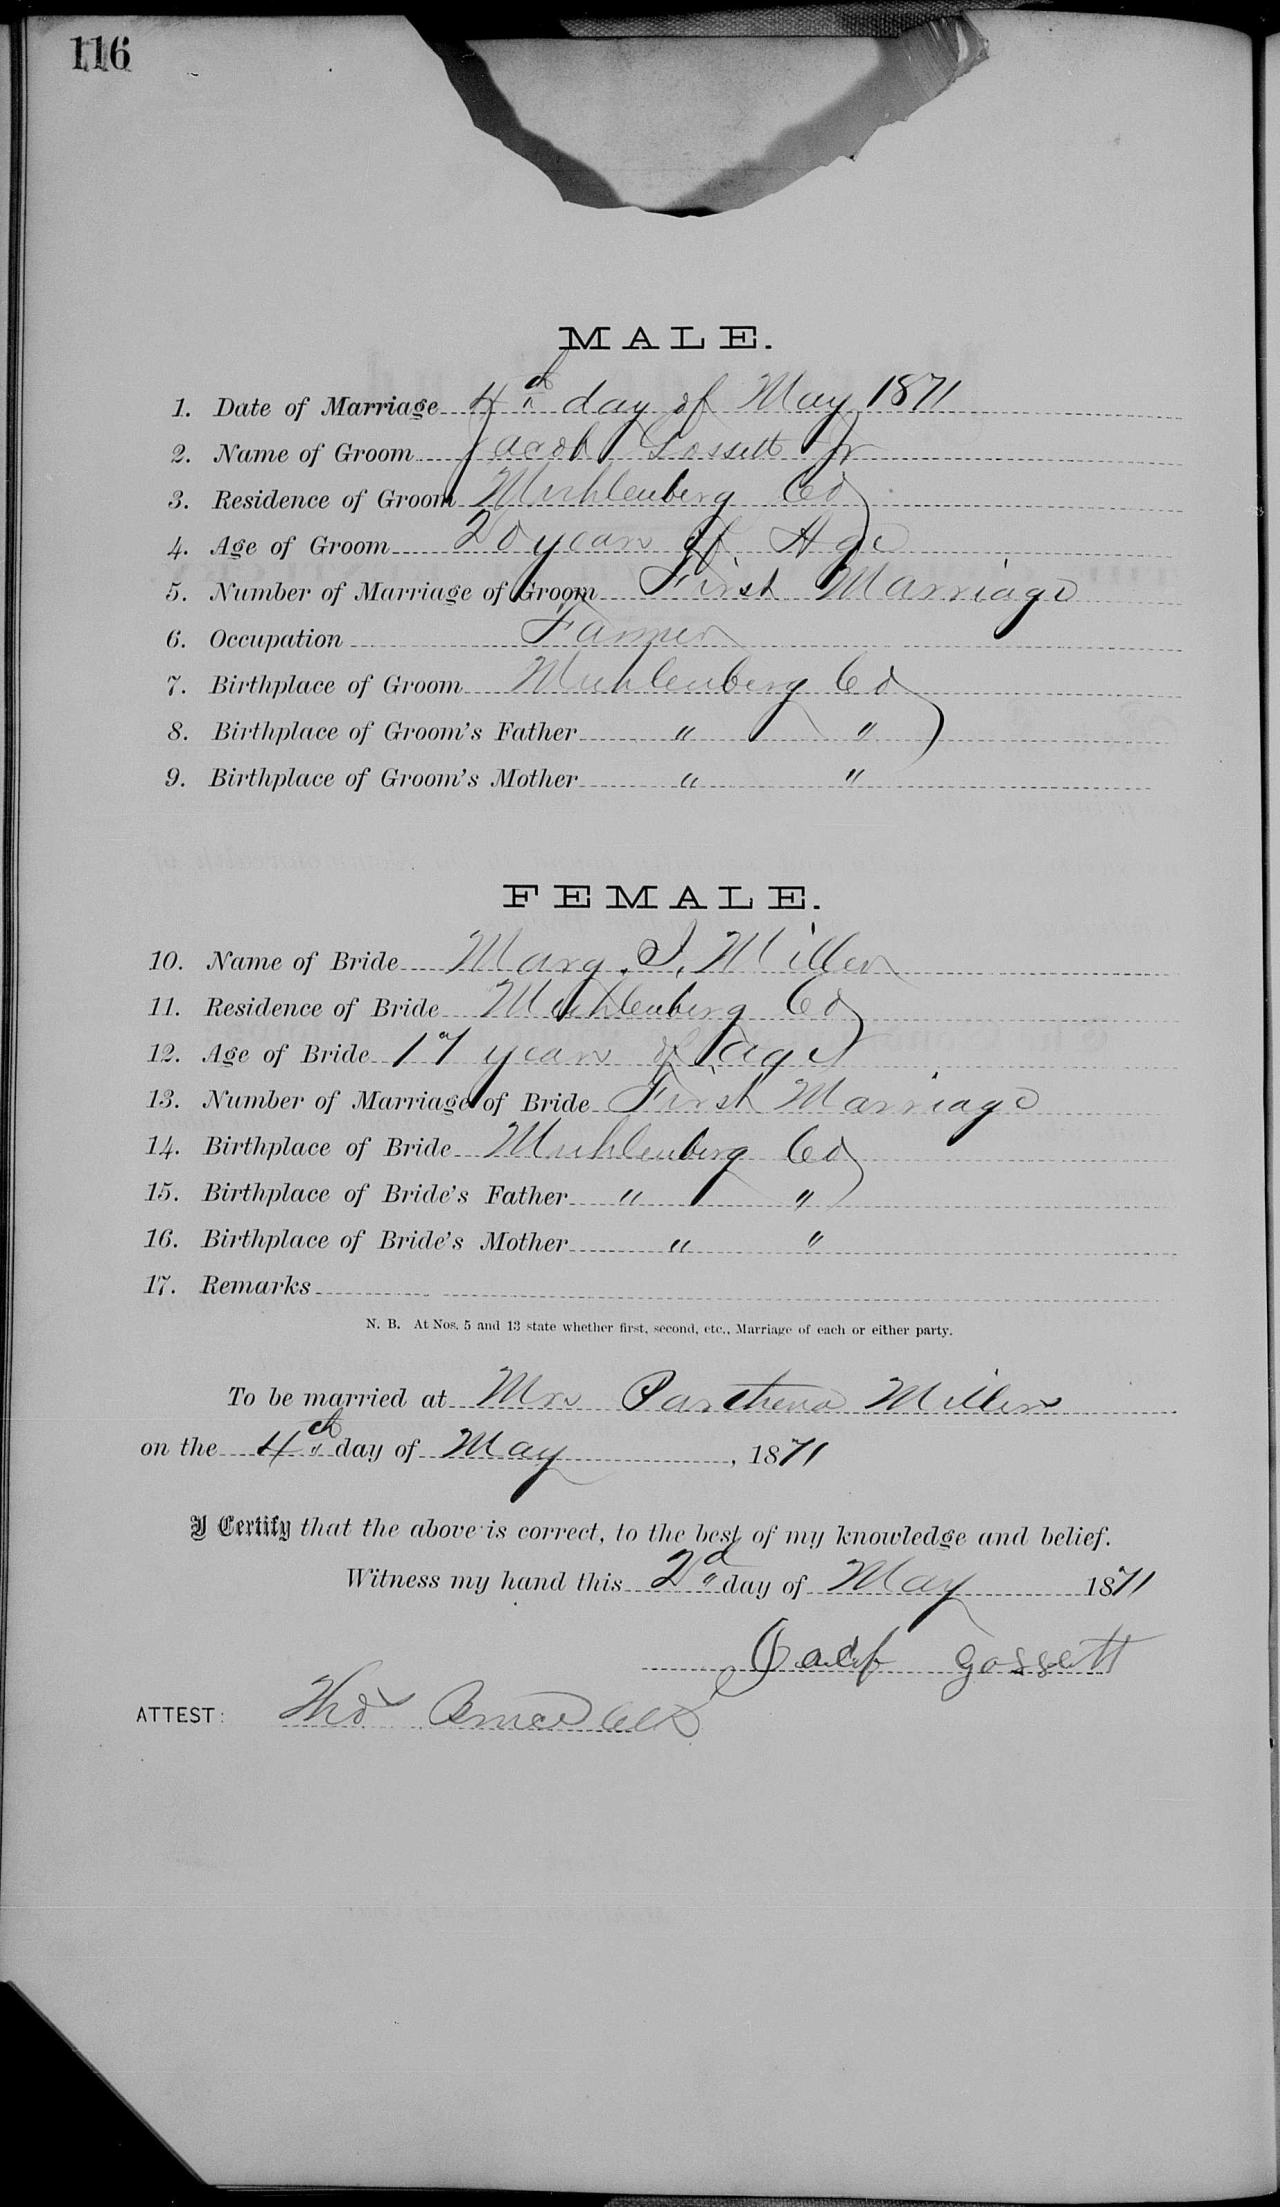 116
MALE.
1. Date of Marriage 4th day of May 1871
2. Name of Groom Jacob Gossett Jr
3. Residence of Groom Muhlenberg Co
4. Age of Groom 20 years of Age
5. Number of Marriage of Groom First Marriage
6. Occupation Farmer
7. Birthplace of Groom Muhlenberg Co
8. Birthplace of Groom's Father " "
9. Birthplace of Groom's Mother " "
FEMALE.
10. Name of Bride Mary. I. Miller
11. Residence of Bride Muhlenberg Co
12. Age of Bride 17 years of age
13. Number of Marriage of Bride First Marriage
14. Birthplace of Bride Muhlenberg Co
15. Birthplace of Bride's Father " "
16. Birthplace of Bride's Mother " "
17. Remarks
N. B. At Nos. 5 and 13 state whether first, second, etc., Marriage of each or either party.
To be married at Mrs Parthena Millers
on the 4th day of May, 1871
I Certify that the above is correct, to the best of my knowledge and belief.
Witness my hand this 2d day of May 1871
Jacob gossett
ATTEST: Tho Bruce Clk